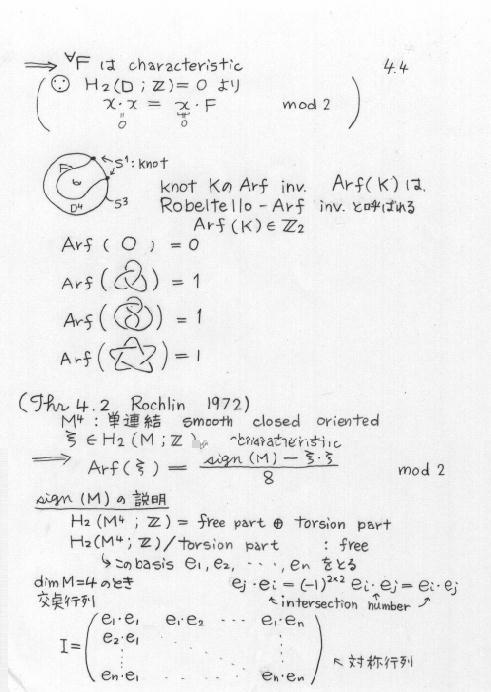 ⟹ ∀F は characteristic 4.4
(☺ H₂(D ; ℤ) = 0 より
x・x = x・F mod 2)
0 0
F S¹ : knot
D⁴ S³
knot K の Arf inv. Arf(K) は、
Robeltello-Arf inv. と呼ばれる
Arf(K) ∈ ℤ₂
Arf( ) = 0
Arf( ) = 1
Arf( ) = 1
Arf( ) = 1
(Thr 4.2 Rochlin 1972)
M⁴ : 単連結 smooth closed oriented
ξ ∈ H₂(M ; ℤ) characteristic
⟹ Arf(ξ) = (sign(M) − ξ・ξ) / 8 mod 2
sign(M) の 説明
H₂(M⁴ ; ℤ) = free part ⊕ torsion part
H₂(M⁴ ; ℤ)/torsion part : free
↳ この basis e₁, e₂, ・・・, eₙ をとる
dim M=4 のとき eⱼ・eᵢ = (-1)²ˣ² eᵢ・eⱼ = eᵢ・eⱼ
交点行列 intersection number
e₁・e₁ e₁・e₂ ・・・ e₁・eₙ
I = e₂・e₁
eₙ・e₁ eₙ・eₙ ↖ 対称行列